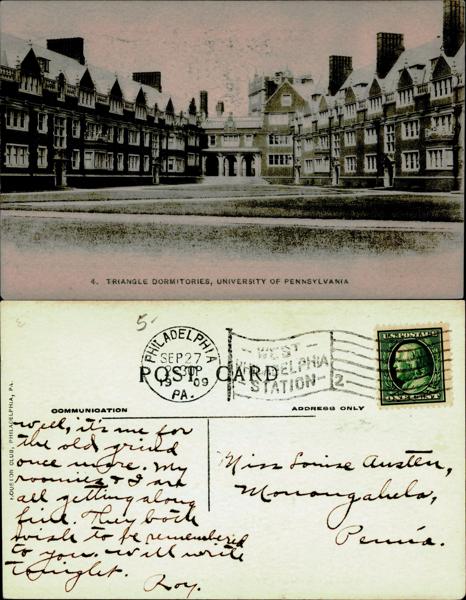 4. TRIANGLE DORMITORIES, UNIVERSITY OF PENNSYLVANIA
5-
PHILADELPHIA
SEP 27
30P
19 09
PA.
WEST
PHILADELPHIA
STATION
2
U.S. POSTAGE
ONE CENT
POST CARD
COMMUNICATION
ADDRESS ONLY
HOUSTON CLUB, PHILADELPHIA, PA.
Well, it's me for
the old grind
once more. My
roomies & I are
all getting along
fine. They both
wish to be remembered
to you. Will write
tonight. Roy.
Miss Louise Austen,
Monongahela,
Penna.